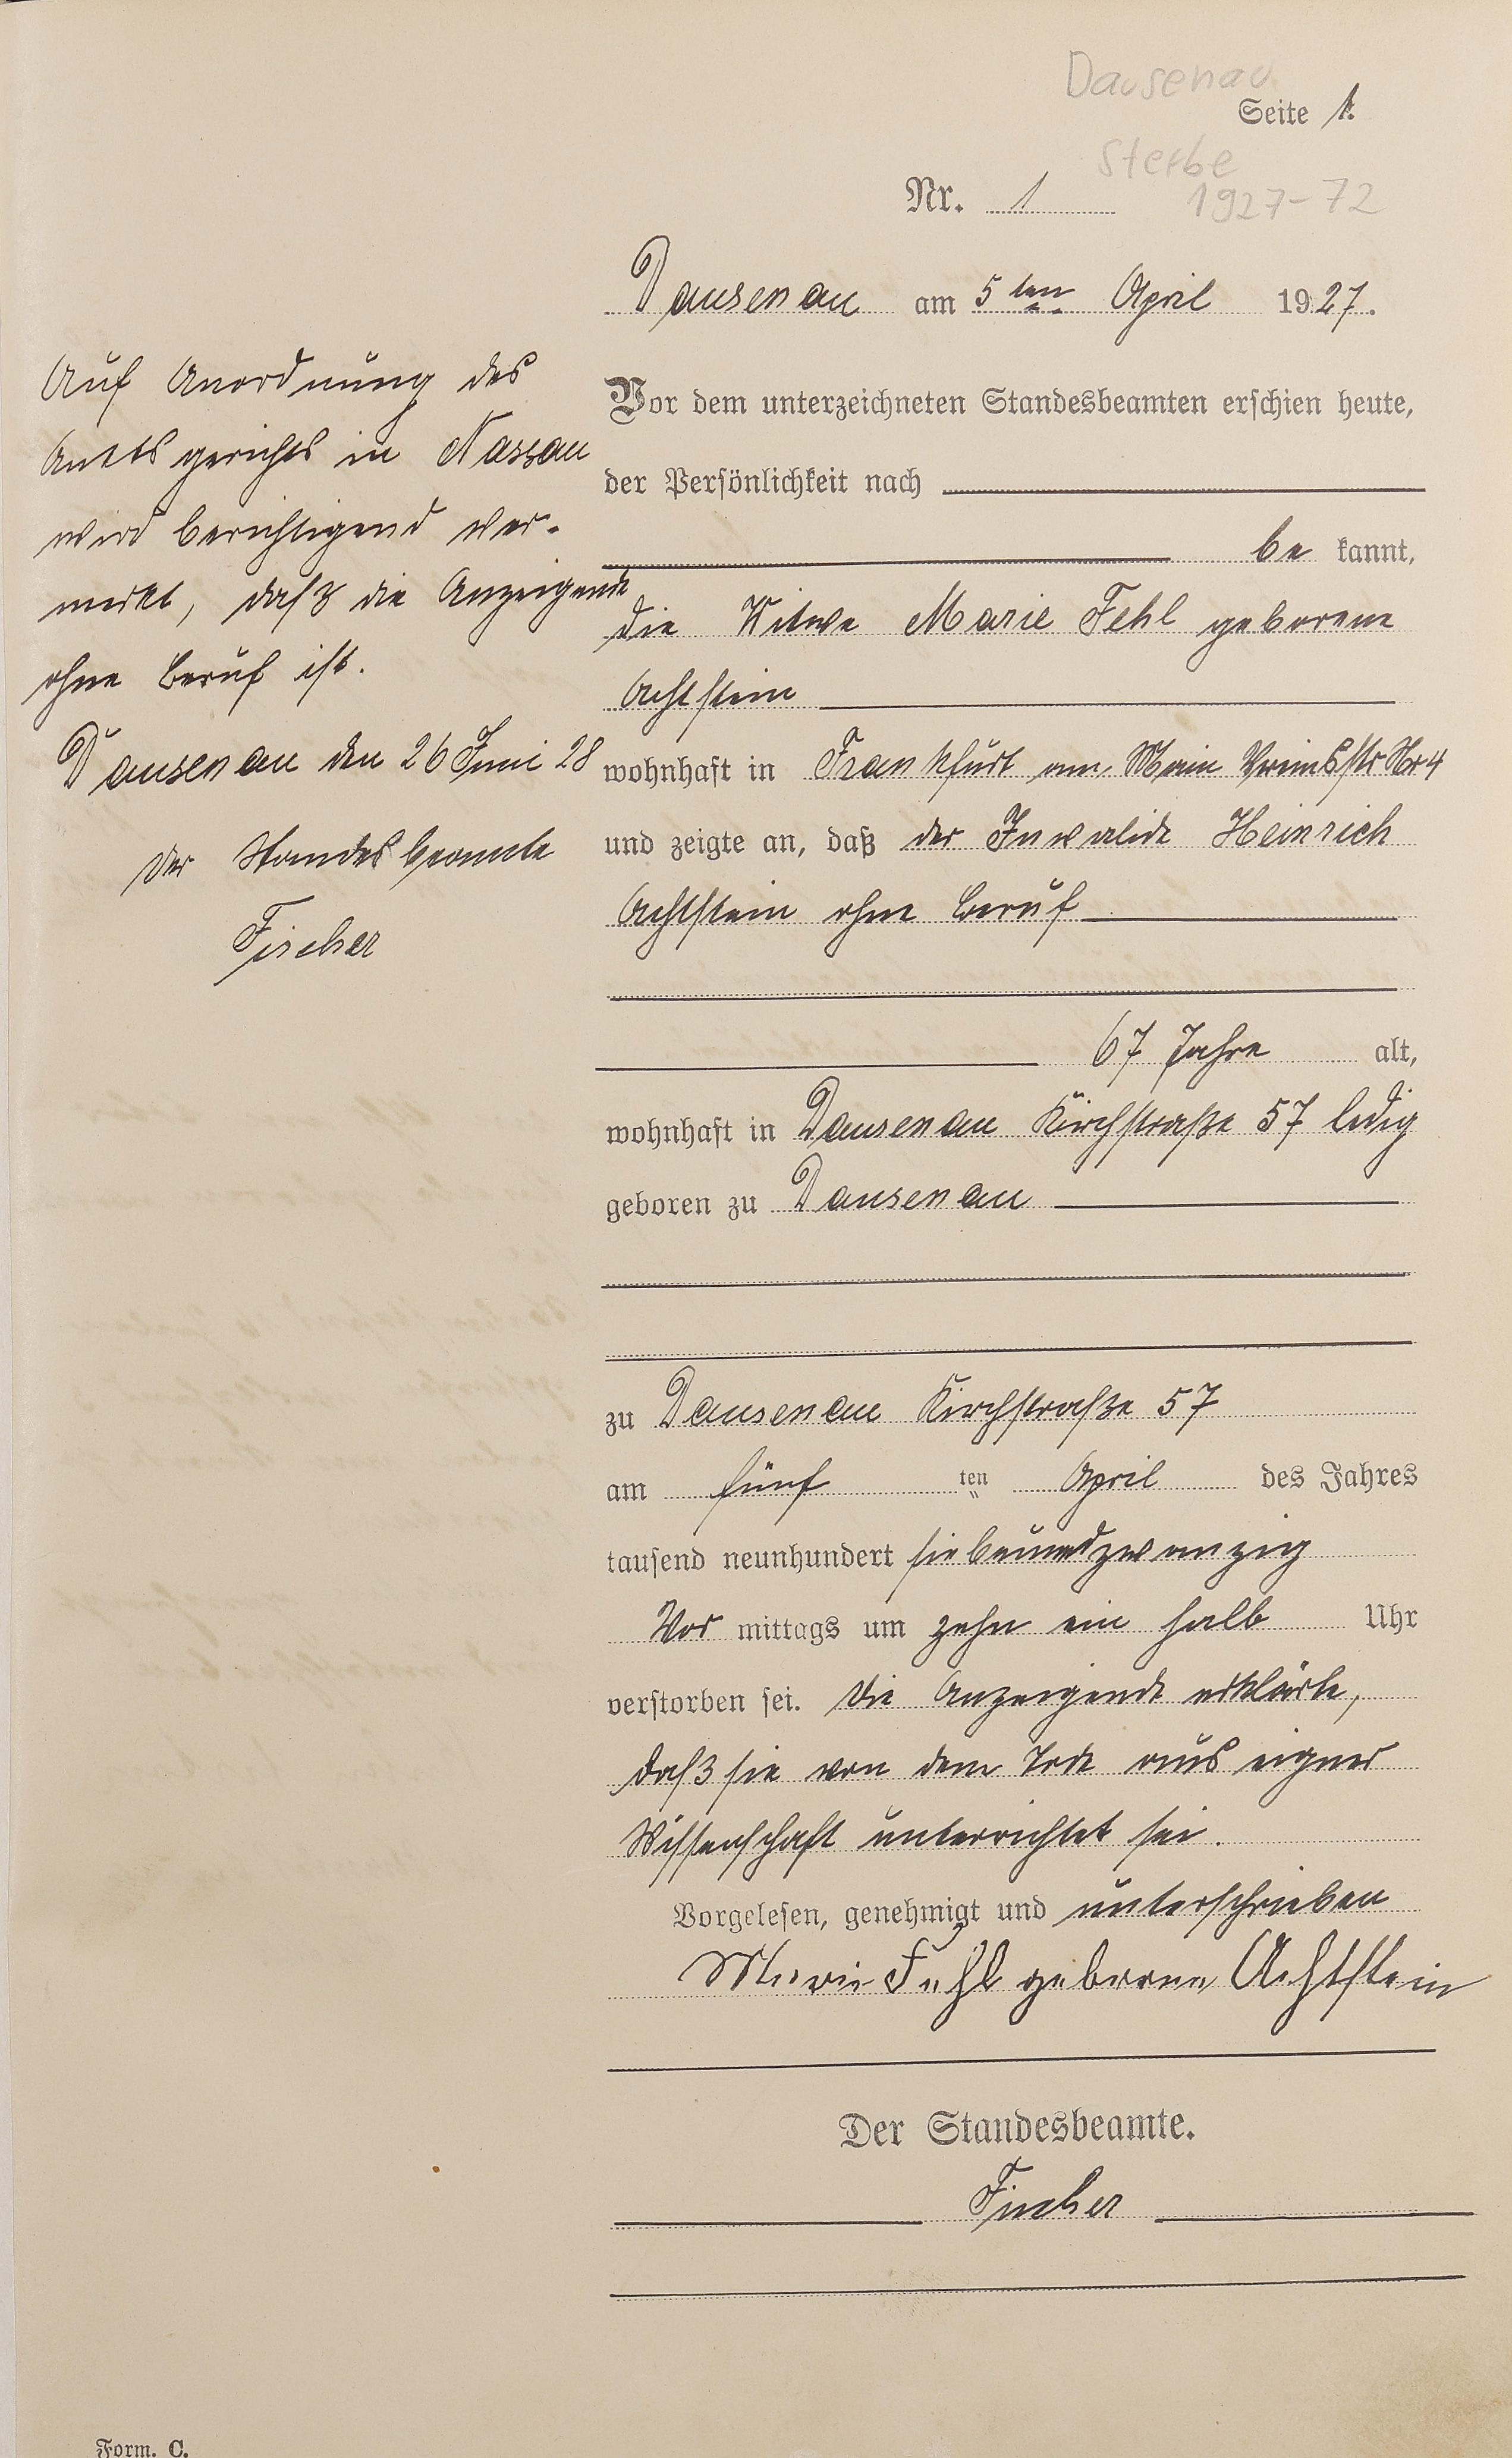 Dausenau
Seite 1.
Sterbe
1927-72
Nr. 1
Dausenau am 5ten April 1927.
Vor dem unterzeichneten Standesbeamten erschien heute,
der Persönlichkeit nach
be kannt,
die Witwe Marie Fehl geborene
Achtstein
wohnhaft in Frankfurt am Main Nr 4
und zeigte an, daß der Invalide Heinrich
Achtstein ohne Beruf
67 Jahre alt,
wohnhaft in Dausenau Kirchstraße 57 ledig
geboren zu Dausenau
zu Dausenau Kirchstraße 57
am fünf ten April des Jahres
tausend neunhundert siebenundzwanzig
Vor mittags um zehn ein halb Uhr
verstorben sei. Die Anzeigende erklärte,
daß sie von dem Tode aus eigner
Wissenschaft unterrichtet sei.
Vorgelesen, genehmigt und unterschrieben
Marie Fehl geborene Achtstein
Der Standesbeamte.
Fischer
Auf Anordnung des
Amtsgerichts in Nassau
wird berichtigend ver-
merkt, daß die Anzeigende
ohne Beruf ist.
Dausenau den 26 Juni 28
Der Standesbeamte
Fischer
Form. C.